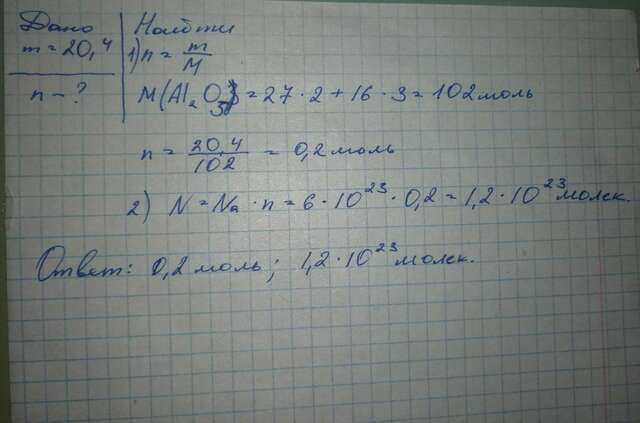 Дано
m = 20,4
n - ?
Найти
1) n = m/M
M(Al₂O₃) = 27 · 2 + 16 · 3 = 102 моль
n = 20,4/102 = 0,2 моль
2) N = Nₐ · n = 6 · 10²³ · 0,2 = 1,2 · 10²³ молек.
Ответ: 0,2 моль; 1,2 · 10²³ молек.